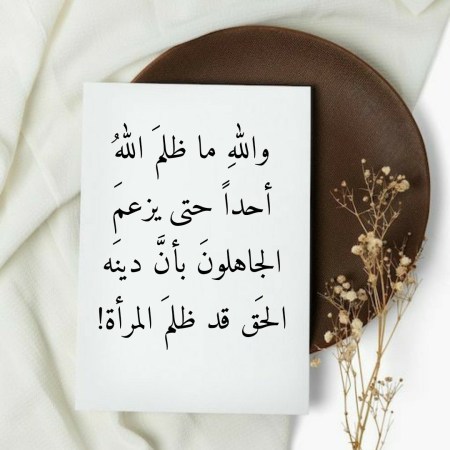 واللهِ ما ظلمَ اللهُ
أحداً حتى يزعمَ
الجاهلونَ بأنَّ دينَه
الحَق قد ظلمَ المرأة!